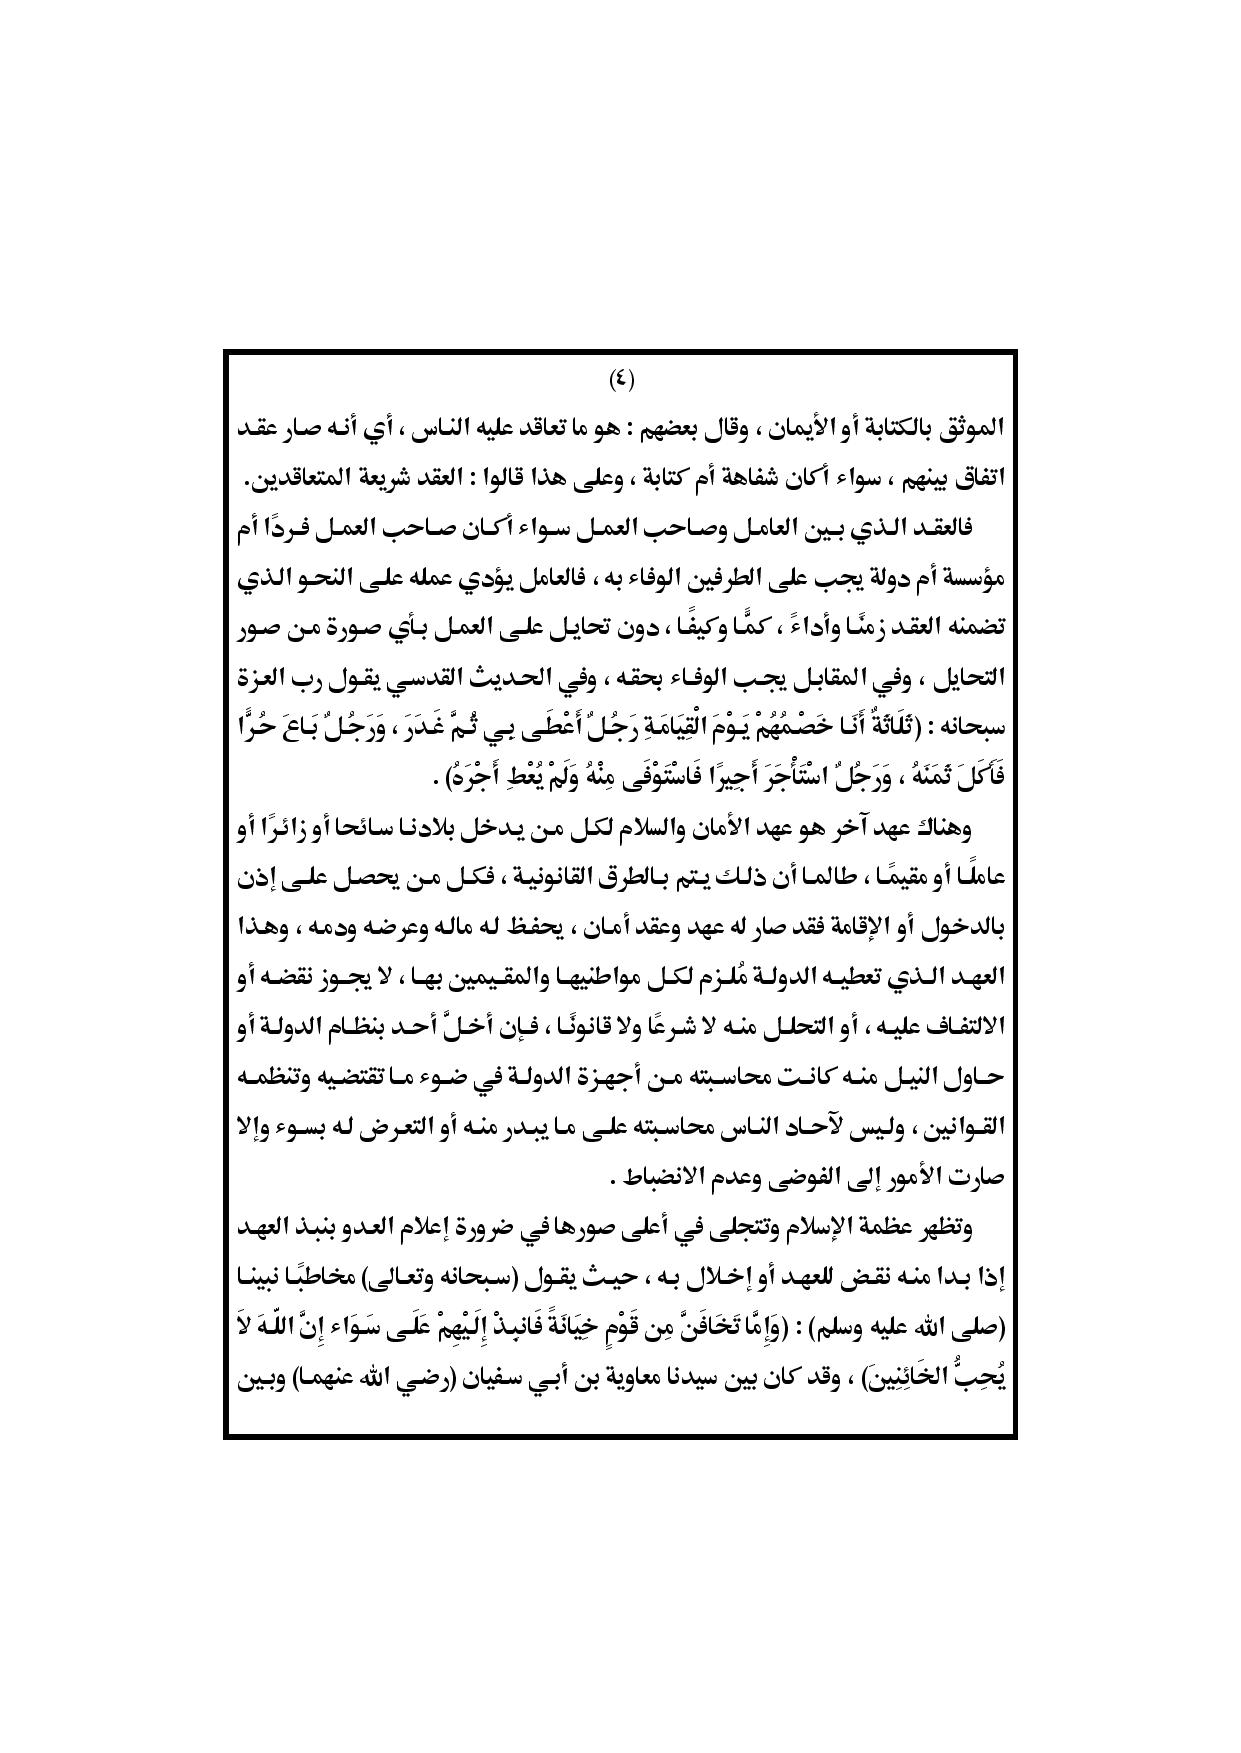 (٤)
الموثق بالكتابة أو الأيمان ، وقال بعضهم : هو ما تعاقد عليه الناس ، أي أنه صار عقد
اتفاق بينهم ، سواء أكان شفاهة أم كتابة ، وعلى هذا قالوا : العقد شريعة المتعاقدين.
فالعقد الذي بين العامل وصاحب العمل سواء أكان صاحب العمل فردًا أم
مؤسسة أم دولة يجب على الطرفين الوفاء به ، فالعامل يؤدي عمله على النحو الذي
تضمنه العقد زمنًا وأداءً ، كمًّا وكيفًا ، دون تحايل على العمل بأي صورة من صور
التحايل ، وفي المقابل يجب الوفاء بحقه ، وفي الحديث القدسي يقول رب العزة
سبحانه : (ثَلَاثَةٌ أَنَا خَصْمُهُمْ يَوْمَ الْقِيَامَةِ رَجُلٌ أَعْطَى بِي ثُمَّ غَدَرَ ، وَرَجُلٌ بَاعَ حُرًّا
فَأَكَلَ ثَمَنَهُ ، وَرَجُلٌ اسْتَأْجَرَ أَجِيرًا فَاسْتَوْفَى مِنْهُ وَلَمْ يُعْطِ أَجْرَهُ) .
وهناك عهد آخر هو عهد الأمان والسلام لكل من يدخل بلادنا سائحا أو زائرًا أو
عاملًا أو مقيمًا ، طالما أن ذلك يتم بالطرق القانونية ، فكل من يحصل على إذن
بالدخول أو الإقامة فقد صار له عهد وعقد أمان ، يحفظ له ماله وعرضه ودمه ، وهذا
العهد الذي تعطيه الدولة مُلزم لكل مواطنيها والمقيمين بها ، لا يجوز نقضه أو
الالتفاف عليه ، أو التحلل منه لا شرعًا ولا قانونًا ، فإن أخلَّ أحد بنظام الدولة أو
حاول النيل منه كانت محاسبته من أجهزة الدولة في ضوء ما تقتضيه وتنظمه
القوانين ، وليس لآحاد الناس محاسبته على ما يبدر منه أو التعرض له بسوء وإلا
صارت الأمور إلى الفوضى وعدم الانضباط .
وتظهر عظمة الإسلام وتتجلى في أعلى صورها في ضرورة إعلام العدو بنبذ العهد
إذا بدا منه نقض للعهد أو إخلال به ، حيث يقول (سبحانه وتعالى) مخاطبًا نبينا
(صلى الله عليه وسلم) : (وَإِمَّا تَخَافَنَّ مِن قَوْمٍ خِيَانَةً فَانبِذْ إِلَيْهِمْ عَلَى سَوَاء إِنَّ اللّهَ لاَ
يُحِبُّ الخَائِنِينَ) ، وقد كان بين سيدنا معاوية بن أبي سفيان (رضي الله عنهما) وبين